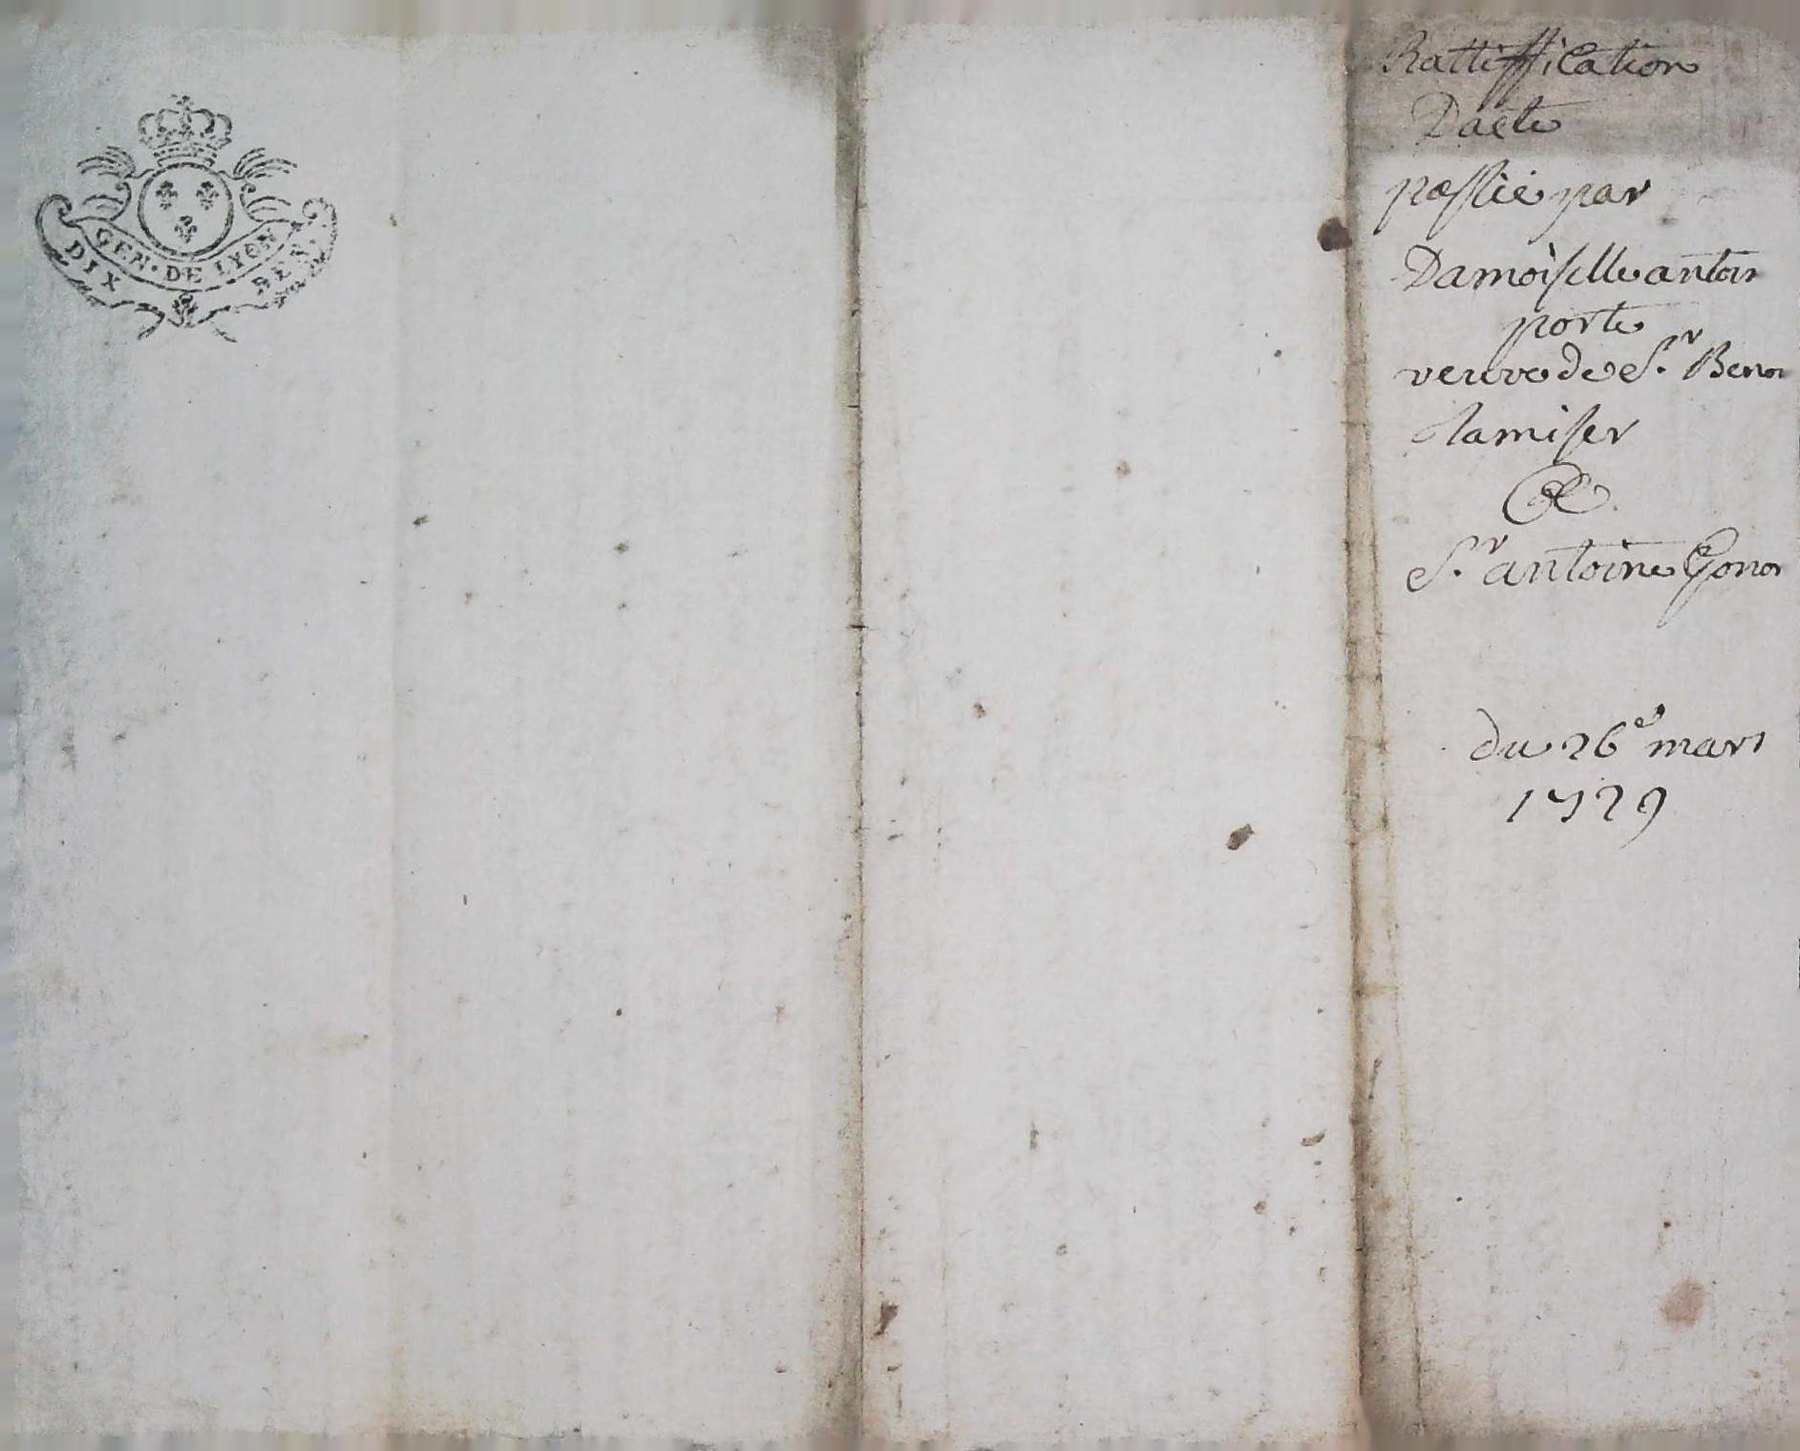 GEN·DE LYON
DIX DEN.
Rattiffication
Dacte
passée par
Damoiselle antoi
porte
veuve de Sr. Benoi
lamiser
&
Sr. antoine Gonon
du 26e mars
1729